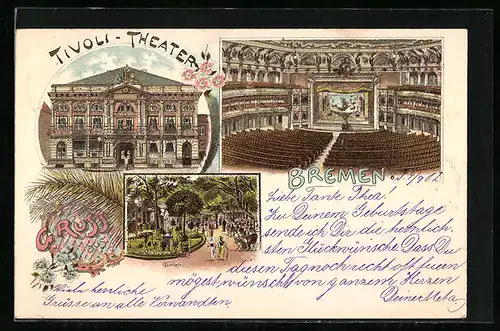 TIVOLI - THEATER
BREMEN
GRUSS
Garten
Liebe Tante Thea!
Zu Deinem Geburtstage
sende ich Dir die herzlich-
sten Glückwünsche. Dass Du
diesen Tag noch recht oft feiern
mögest, wünscht von ganzem Herzen
Deine Meta.
Viele herzliche
Grüsse an alle Verwandten